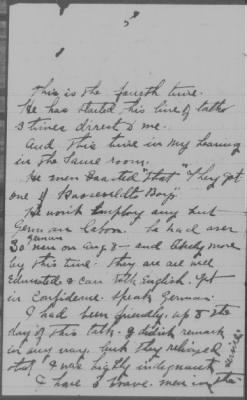 5
This is the fourth time.
He has started this line of talk
3 times direct to me.
And this time in my hearing
in the same room.
He men that "They got
one of Roosevelts Boys"
He wont employ any but
German labor. He had over
30 German men on Aug 8 - and likely more
by this time. They are all well
Educated & can talk English. Yet
in confidence speak German.
I had been friendly up to the
day of this talk. I didnt remark
in any way. but they relized
that I was highly indignant
I have 3 brave men in the service